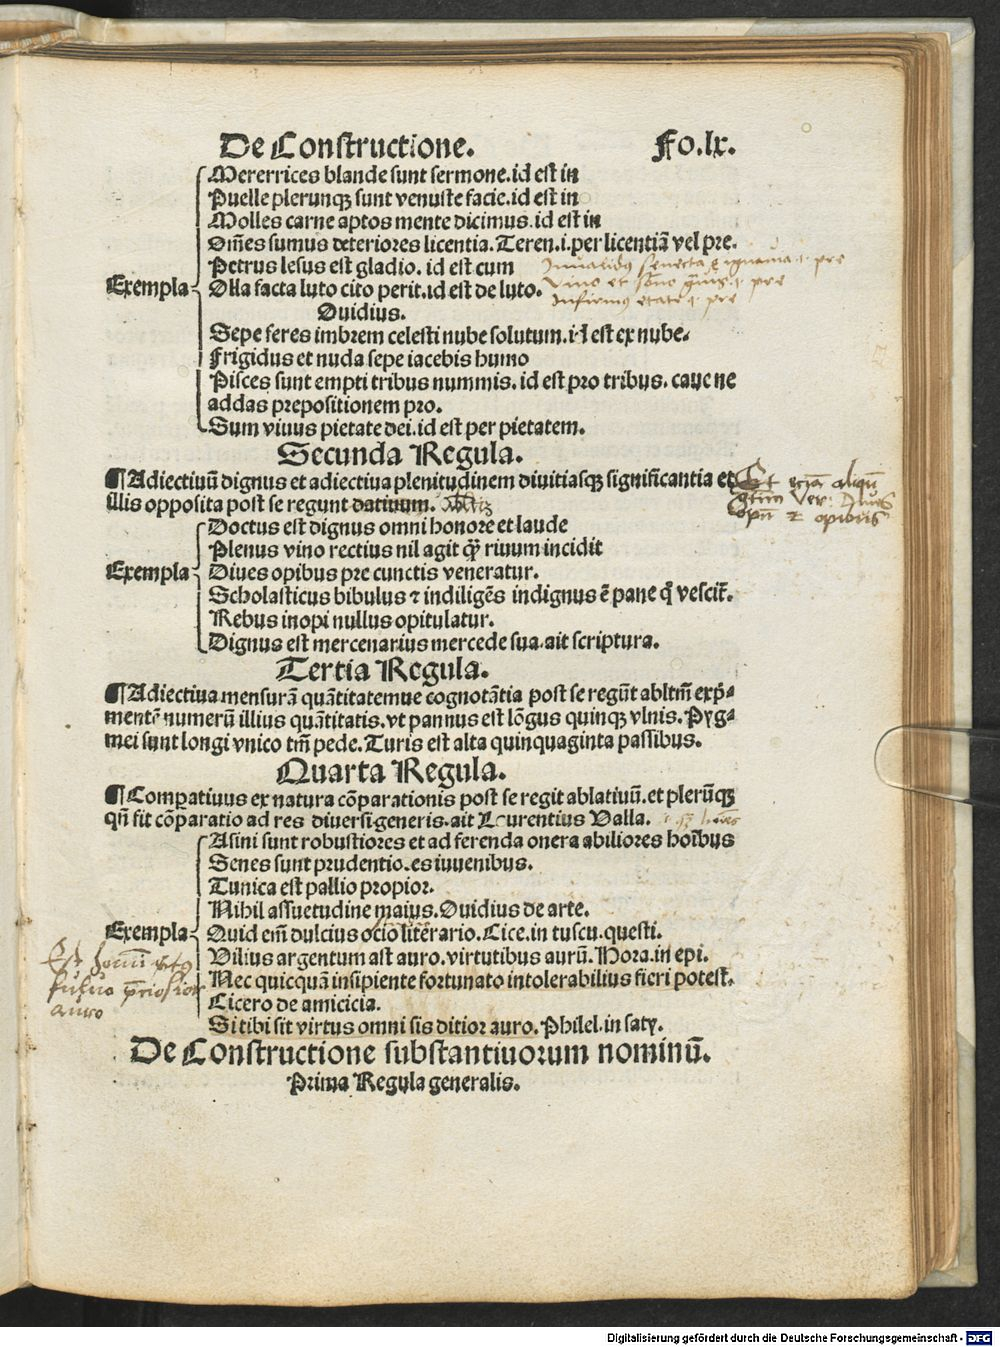 De Constructione. Fo.lx.
Mererrices blande sunt sermone.id est in
Puelle plerunqꝫ sunt venuste facie.id est in
Molles carne aptos mente dicimus.id est in
Om̃es sumus deteriores licentia.Teren.i.per licentiã vel pre.
Petrus lesus est gladio. id est cum
Inualidus senecta pre
Exempla Olla facta luto cito perit.id est de luto.
Vino et pre
Infirmus etate pre
Ouidius.
Sepe feres imbrem celesti nube solutum.i·d est ex nube.
Frigidus et nuda sepe iacebis humo
Pisces sunt empti tribus nummis. id est pro tribus. caue ne
addas prepositionem pro.
Sum viuus pietate dei.id est per pietatem.
Secunda Regula.
¶Adiectiuũ dignus et adiectiua plenitudinem diuitiasqꝫ significantia et
illis opposita post se regunt datiuum.
Et
Doctus est dignus omni honore et laude
Plenus vino rectius nil agit q̃ȝ riuum incidit
Exempla Diues opibus pre cunctis veneratur.
Scholasticus bibulus ⁊ indiligẽs indignus ẽ pane q̃ vescit̃.
Rebus inopi nullus opitulatur.
Dignus est mercenarius mercede sua.ait scriptura.
Tertia Regula.
¶Adiectiua mensurã quãtitatemue cognotãtia post se regũt abltm̃ exp̃⸗
mentẽ numerũ illius quãtitatis.vt pannus est lõgus quinqꝫ vlnis. Pyg⸗
mei sunt longi vnico tm̃ pede.Turis est alta quinquaginta passibus.
Quarta Regula.
¶Compatiuus ex natura cõparationis post se regit ablatiuũ.et plerũqꝫ
qñ fit cõparatio ad res diuersi generis.ait Laurentius Valla.
Asini sunt robustiores et ad ferenda onera abiliores hoĩbus
Senes sunt prudentiores iuuenibus.
Tunica est pallio propior.
Nihil assuetudine maius.Ouidius de arte.
Exempla Quid em̃ dulcius ocio literario.Cice.in tuscu.questi.
Vilius argentum ast auro.virtutibus aurũ.Hora.in epi.
Nec quicquã insipiente fortunato intolerabilius fieri potest.
auro
Cicero de amicicia.
Si tibi sit virtus omni sis ditior auro.Philel.in saty.
De Constructione substantiuorum nominũ.
Prima Regula generalis.
Digitalisierung gefördert durch die Deutsche Forschungsgemeinschaft - DFG